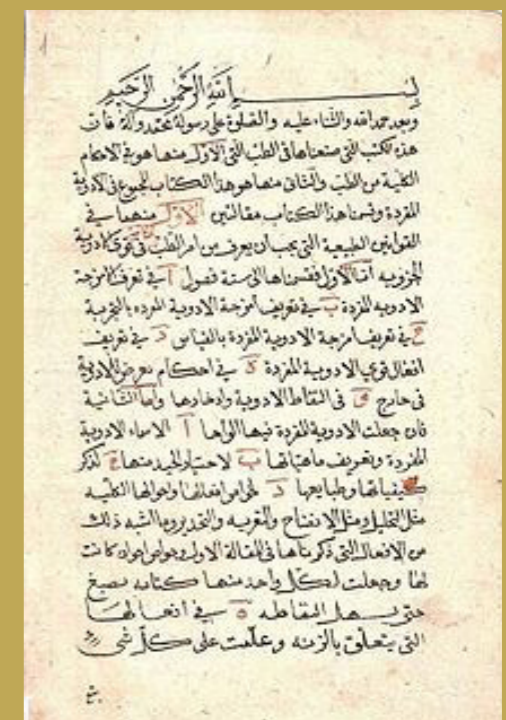 بسم الله الرحمن الرحيم
وبعد حمد الله والثناء عليه والصلوة على رسوله محمد وآله فان
هذه الكتب التي صنعناها في الطب التي الاول منها هو في الاحكام
الكلية من الطب والثاني منها هو هذا الكتاب المجموع في الادوية
المفردة وقسمنا هذا الكتاب مقالتين الاول منهما في
القوانين الطبيعية التي يجب ان يعرف من امر الطب في قوى الادوية
الجزويه اما الاول فقسمناها الى ستة فصول ا في تعرف امزجة
الادويه المفردة ب في تعريف امزجة الادوية المفرده بالتجربة
ج في تعريف امزجة الادوية المفردة بالقياس د في تعريف
افعال قوي الادوية المفردة ه في احكام تعرض للادوية
في خارج و في التقاط الادوية وادخارها واما الثانية
فان جعلت الادوية المفردة فيها الواحا ا الاسماء الادوية
المفردة وتعريف ماهياتها ب لاختيار الجيد منها ج لذكر
كيفياتها وطبايعها د لخواص افعالها واحوالها الكلية
مثل التحليل ومثل الانضاج والتغريه والتخدير وما اشبه ذلك
من الافعال التي ذكرناها في المقالة الاولى وخواص اخرى ان كانت
لها وجعلت لكل واحد منها كتابه بصبغ
حتى يسهل التقاطه ه في افعالها
التي يتعلق بالزينه وعلمت على كل شي